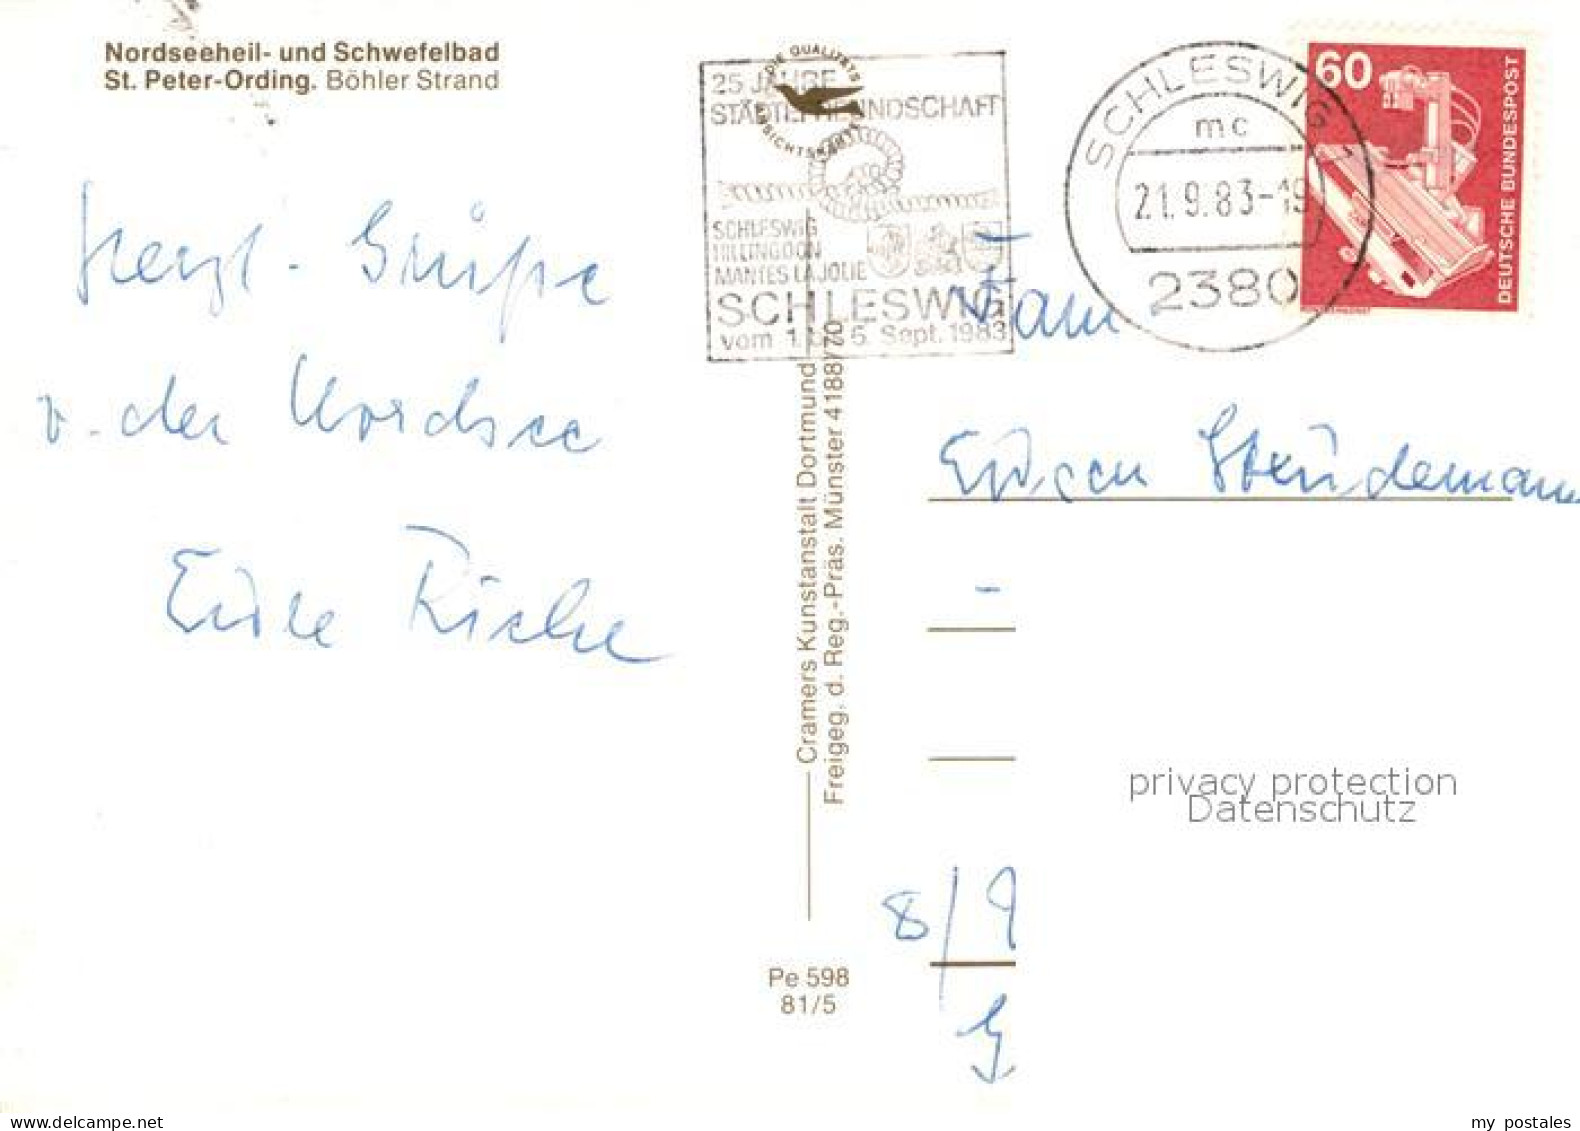 Nordseeheil- und Schwefelbad
St. Peter-Ording. Böhler Strand
Herzl. Grüße
v. der Nordsee
DIE QUALITÄTS
ANSICHTSKARTE
25 JAHRE
STÄDTEFREUNDSCHAFT
SCHLESWIG
HILLINGDON
MANTES LA JOLIE
SCHLESWIG
vom 1. 5. Sept. 1983
SCHLESWIG 1
mc
21.9.83-19
2380
60
DEUTSCHE BUNDESPOST
Fam
Stüdemann
Cramers Kunstanstalt Dortmund
Freigeg. d. Reg.-Präs. Münster 4188/70
Pe 598
81/5
privacy protection
Datenschutz
8/9
www.delcampe.net
my postales